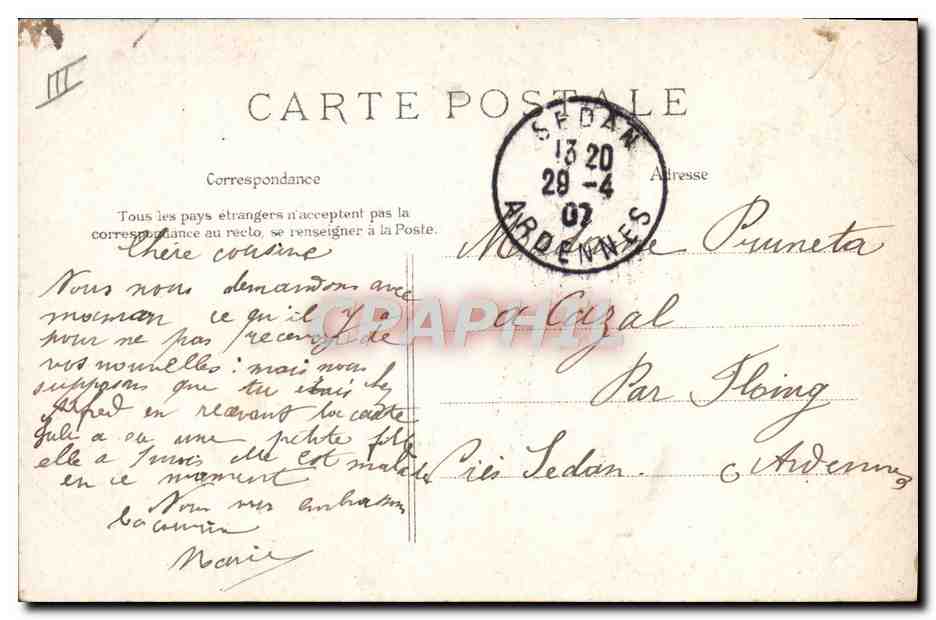 III
CARTE POSTALE
SEDAN
13 20
29 -4
07
ARDENNES
Correspondance
Adresse
Tous les pays étrangers n'acceptent pas la
correspondance au recto, se renseigner à la Poste.
Chère cousine
Nous nous demandons avec
maman ce qu'il y a
pour ne pas recevoir de
vos nouvelles : mais nous
supposons que tu étais chez
Alfred en recevant la carte
Julie a eu une petite fille
elle a mois elle est malade
en ce moment
Nous vous embrassons
ta cousine
Marie
Pruneta
a Cazal
Par Floing
Près Sedan. Ardennes
CRAPHIL